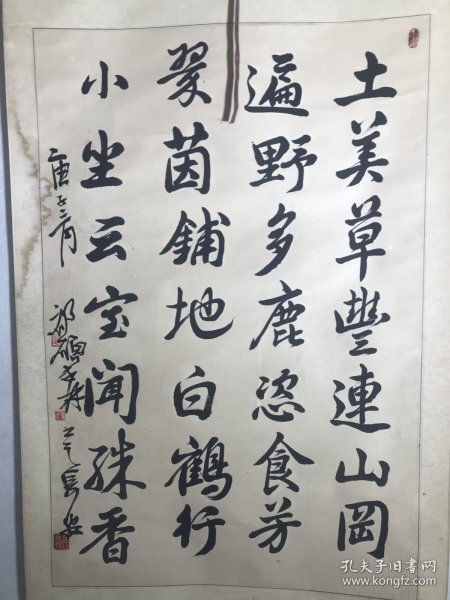 土美草豐連山岡
遍野多鹿恣食芳
翠茵鋪地白鶴行
小坐云宝聞殊香
庚子三月
书于長安
孔夫子旧书网
www.kongfz.com